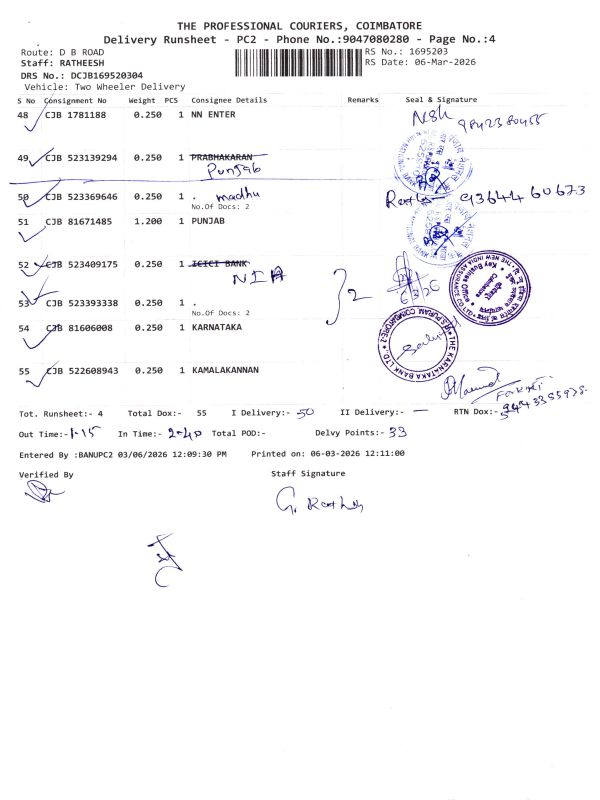 THE PROFESSIONAL COURIERS, COIMBATORE
Delivery Runsheet - PC2 - Phone No.:9047080280 - Page No.:4
Route: D B ROAD
RS No.: 1695203
Staff: RATHEESH
RS Date: 06-Mar-2026
DRS No.: DCJB169520304
Vehicle: Two Wheeler Delivery
S No Consignment No Weight PCS Consignee Details Remarks Seal & Signature
48 CJB 1781188 0.250 1 NN ENTER
49 CJB 523139294 0.250 1 PRABHAKARAN
Punjab
50 CJB 523369646 0.250 1 . madhu 9364460673
No.Of Docs: 2
51 CJB 81671485 1.200 1 PUNJAB
52 CJB 523409175 0.250 1 ICICI BANK
NIA } 2 6/3/26
53 CJB 523393338 0.250 1 .
No.Of Docs: 2
54 CJB 81606008 0.250 1 KARNATAKA
THE KARNATAKA BANK LTD.,
55 CJB 522608943 0.250 1 KAMALAKANNAN
Tot. Runsheet:- 4 Total Dox:- 55 I Delivery:- 50 II Delivery:- — RTN Dox:- 5
Out Time:- 1-15 In Time:- 2-40 Total POD:- Delvy Points:- 33
Entered By :BANUPC2 03/06/2026 12:09:30 PM Printed on: 06-03-2026 12:11:00
Verified By Staff Signature